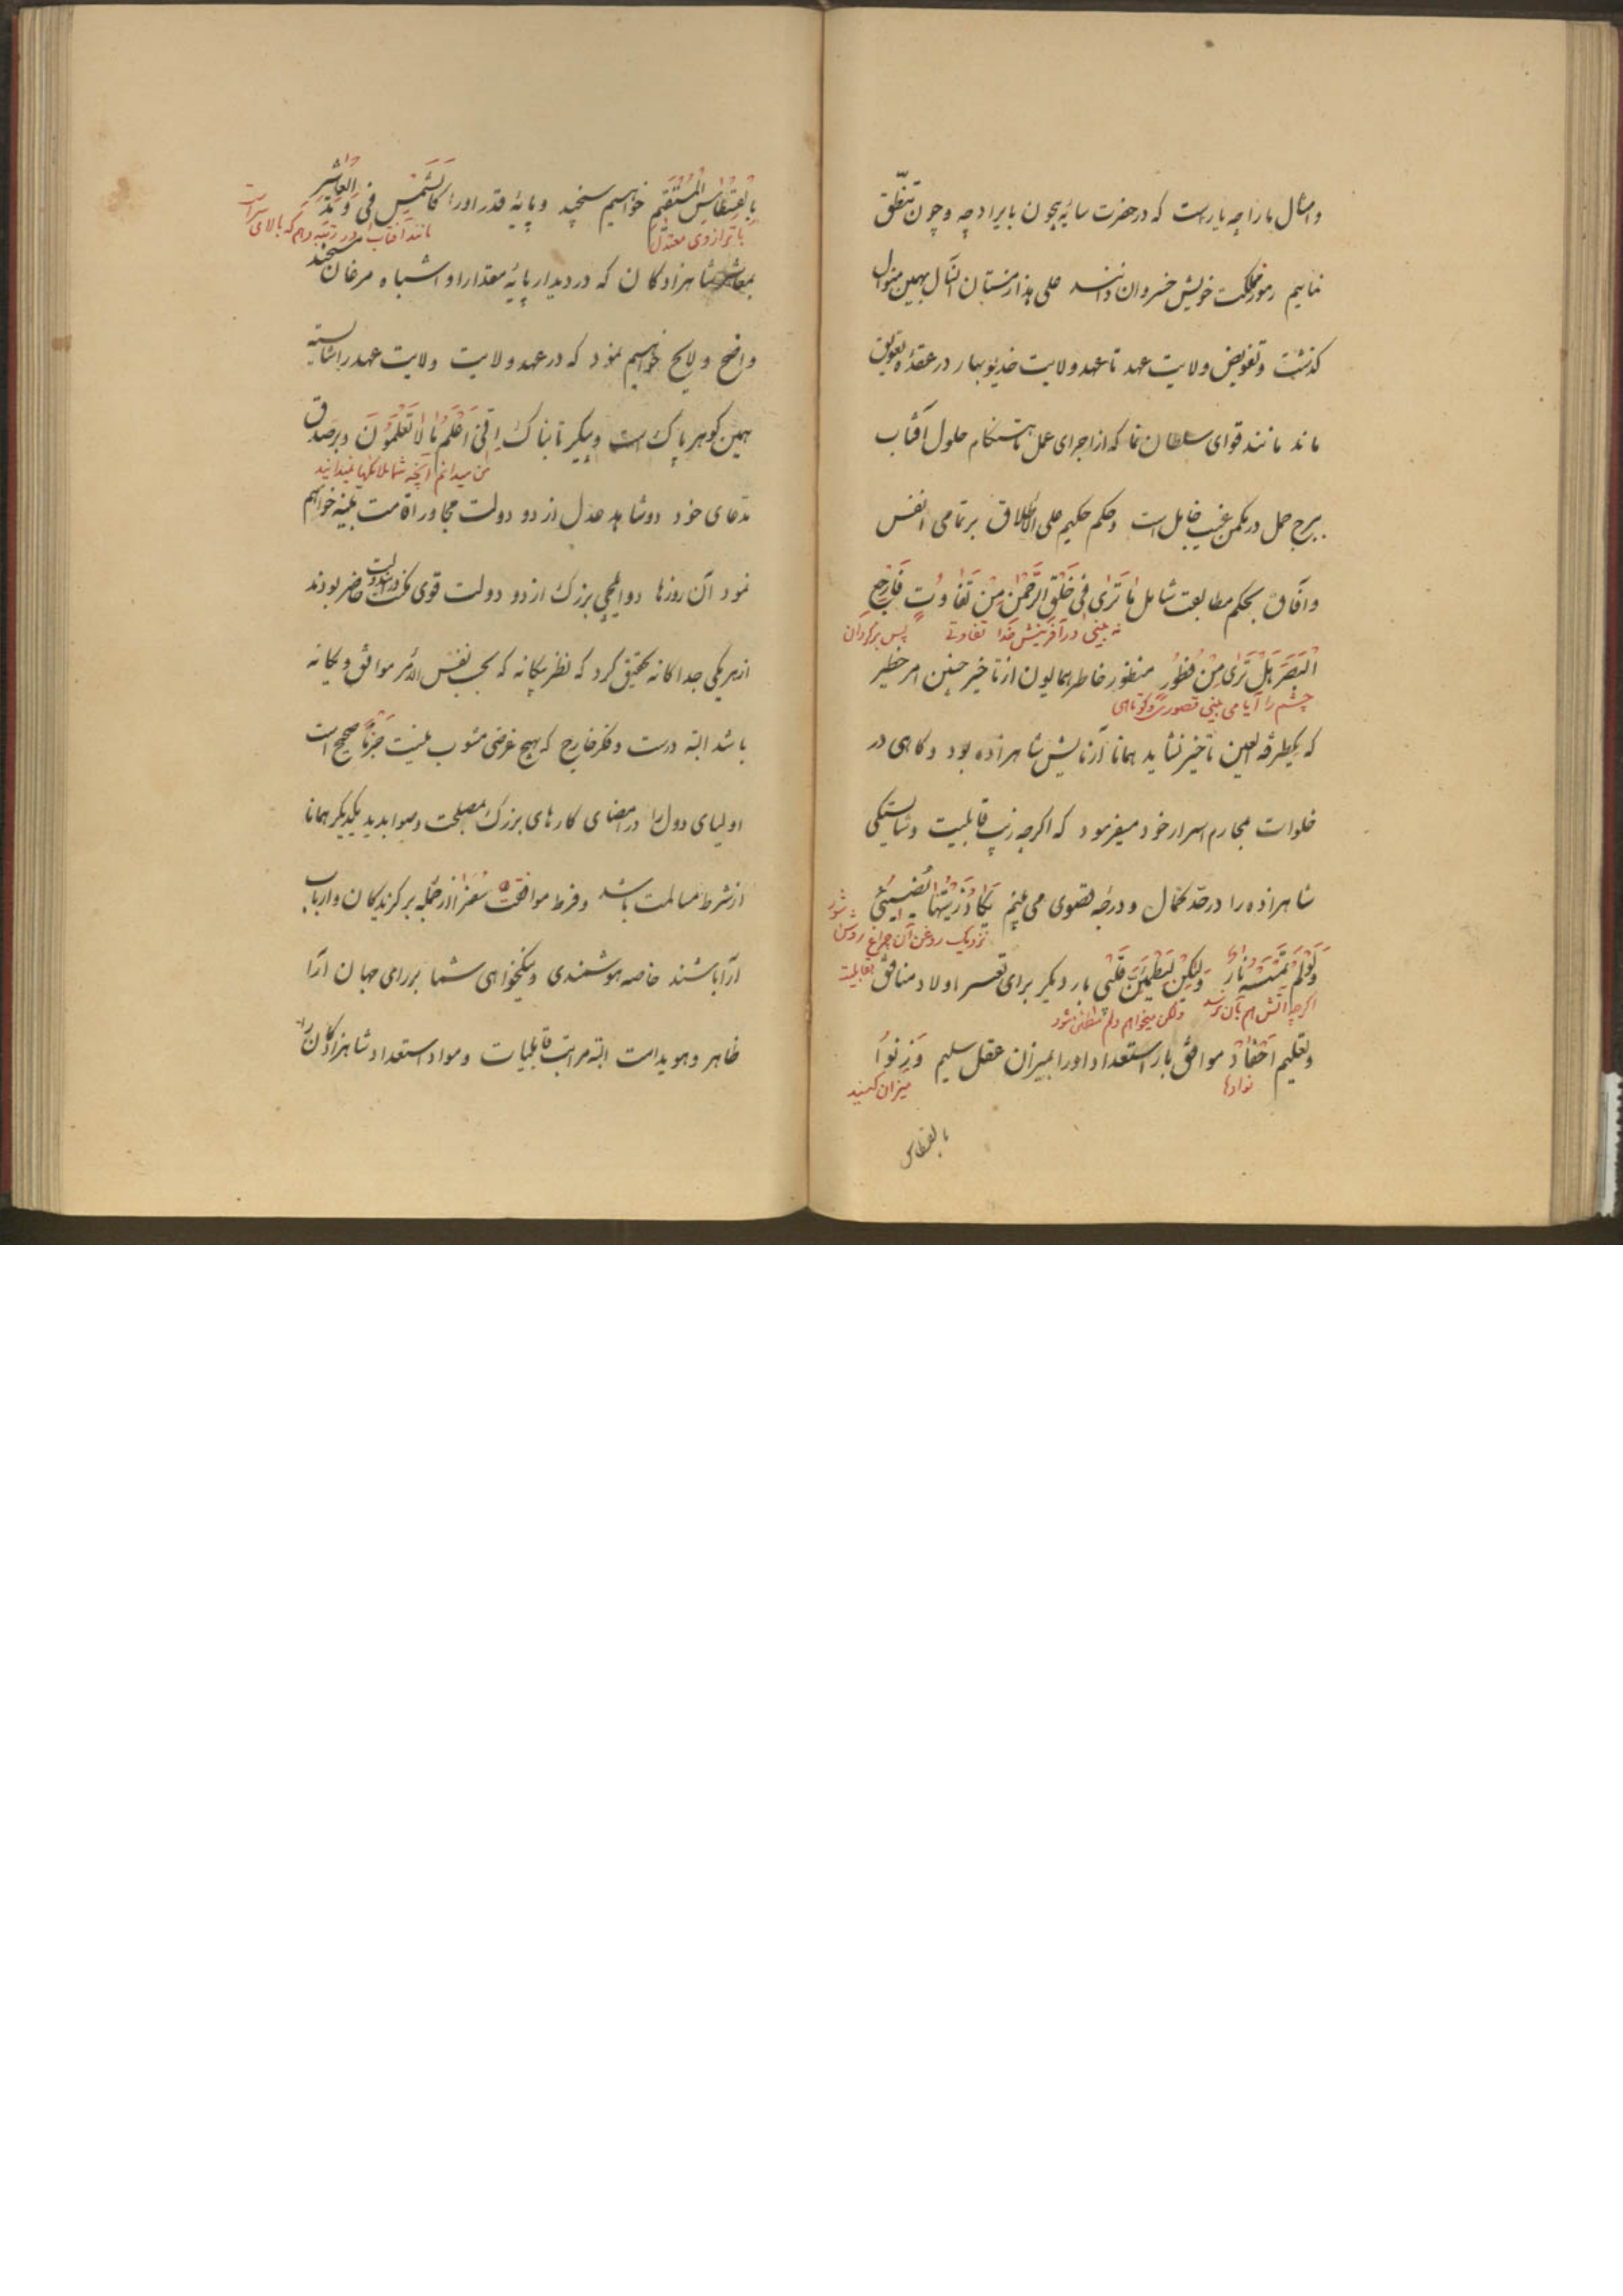 و امثال ما را چه یاراست که در حضرت سایهٔ بیچون بایراد چه و چون تنطّق
نمائیم رموز مملکت خویش خسروان دانند علی هذا زمستان آنسال بهمین منوال
گذشت و تفویض ولایت عهد تا عهد ولایت خدیو بهار در عقدهٔ تعویق
ماند مانند قوای سلطان نما که از اجرای عمل تا هنگام حلول آفتاب
ببرج حمل در مکمن غیب خامل است و حکم حکیم علی الاطلاق بر تمامی انفس
و آفاق بحکم مطابعت شامل مٰا تَرٰی فی خَلْقِ الرَّحْمٰنِ مِنْ تَفٰاوُتٍ فَارْجِعِ
نه بینی در آفرینش خدا تفاوتی پس برگردان
الْبَصَرَ هَلْ تَرٰی مِنْ فُطُورٍ منظور خاطر همایون از تأخیر چنین امر خطیر
چشم را آیا می بینی قصوری و کوتاهی
که یکطرفة العین تأخیر نشاید همانا آزمایش شاهزاده بود و گاهی در
خلوات بمحارم اسرار خود میفرمود که اگرچه زیب قابلیت و شایستگی
شاهزاده را در حد کمال و درجه قصوی می بینم یَکٰادُ زَیْتُهٰا یُضیٓئُ
نزدیک روغن آن چراغ روشن شود
وَلَوْ لَمْ تَمْسَسْهُ نٰارٌ وَلٰکِنْ لِیَطْمَئِنَّ قَلْبی بار دیگر برای تفسر اولاد منافق
اگرچه آتش هم بآن نرسد ولکن میخواهم دلم مطمئن شود
و تعلیم اَحْفاد موافق بار استعداد او را بمیزان عقل سلیم وَزِنُوا
نوادها میزان کنید
بالقسطاس
بِالْقِسْطٰاسِ الْمُسْتَقیمِ خواهیم سنجید و پایهٔ قدر او را کَالشَّمْسِ فی
با ترازوی معتدل مانند آفتاب در رتبه دهم که بالای سراست
بمعاشر شاهزادگان که در دیدار پایهٔ مقدار او اشباه مرغان
واضح و لایح خواهیم نمود که در عهد ولایت ولایت عهد را شایسته
همین گوهر پاک است و پیکر تابناک اِنّی اَعْلَمُ مٰا لا تَعْلَمُونَ و بر صدق
من میدانم آنچه شما ملائکه‌ها نمیدانید
مدعای خود دو شاهد عدل از دو دولت مجاور اقامت بیّنه خواهم
نمود آن روزها دو ایلچی بزرگ از دو دولت قوی مکنت در ایندولت حاضر بودند
از هر یکی جداگانه تحقیق کرد که نظر بیگانه که بحسب نفس الامر موافق و یگانه
باشد البته درست و فکر خارج که بهیچ غرضی مشوب نیست جَزْماً صحیح است
اولیای دول را در امضای کارهای بزرگ مصلحت و صوابدید یکدیگر همانا
از شرط مسالمت باشد و فرط موافقت سُفَرا از جمله برگزیدگان و ارباب
آرا باشند خاصه هوشمندی و نیکخواهی شما بر رای جهان آرا
ظاهر و هویداست البته مراتب قابلیات و مواد استعداد شاهزادگان را